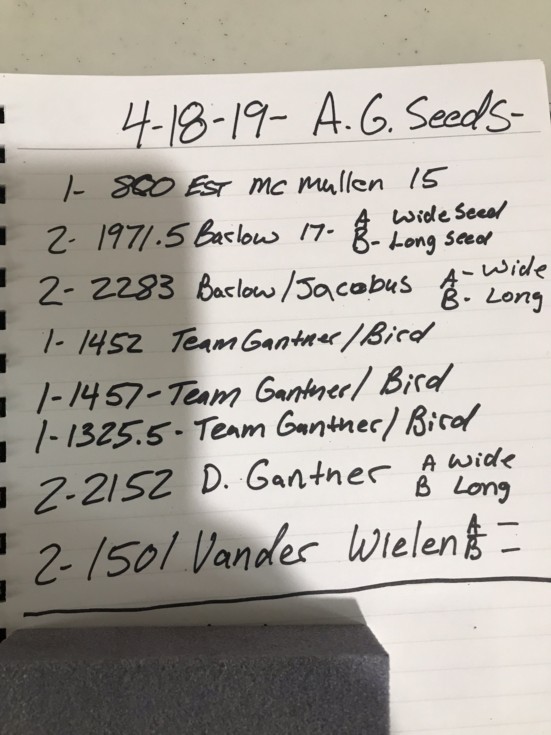 4-18-19- A.G. Seeds-
1- 800 EST Mc Mullen 15
2- 1971.5 Barlow 17- A Wide Seed
B- Long Seed
2- 2283 Barlow/Jacobus A- Wide
B- Long
1- 1452 Team Gantner/Bird
1-1457-Team Gantner/Bird
1-1325.5-Team Gantner/Bird
2-2152 D. Gantner A Wide
B Long
2-1501 Vander Wielen A -
B -